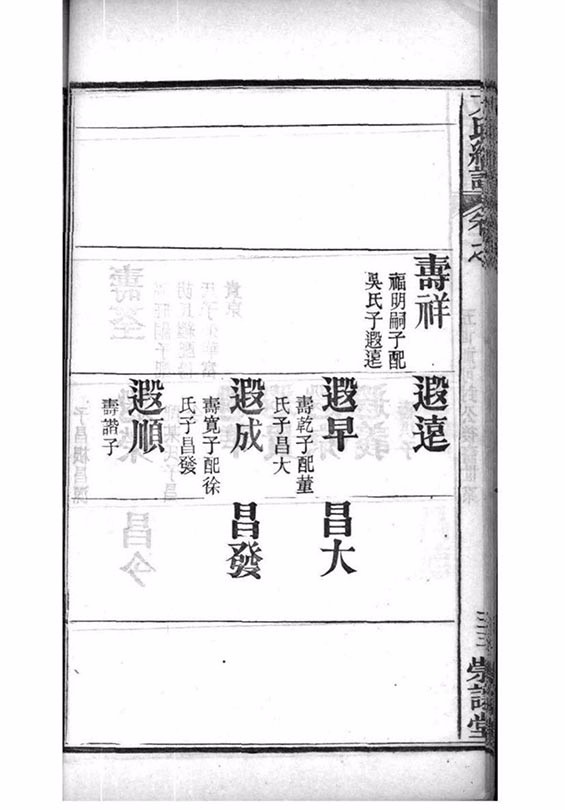 壽祥
福明嗣子配
吳氏子遐遠
遐遠
遐早
壽乾子配董
氏子昌大
遐成
壽寬子配徐
氏子昌發
遐順
壽諧子
昌大
昌發
三三